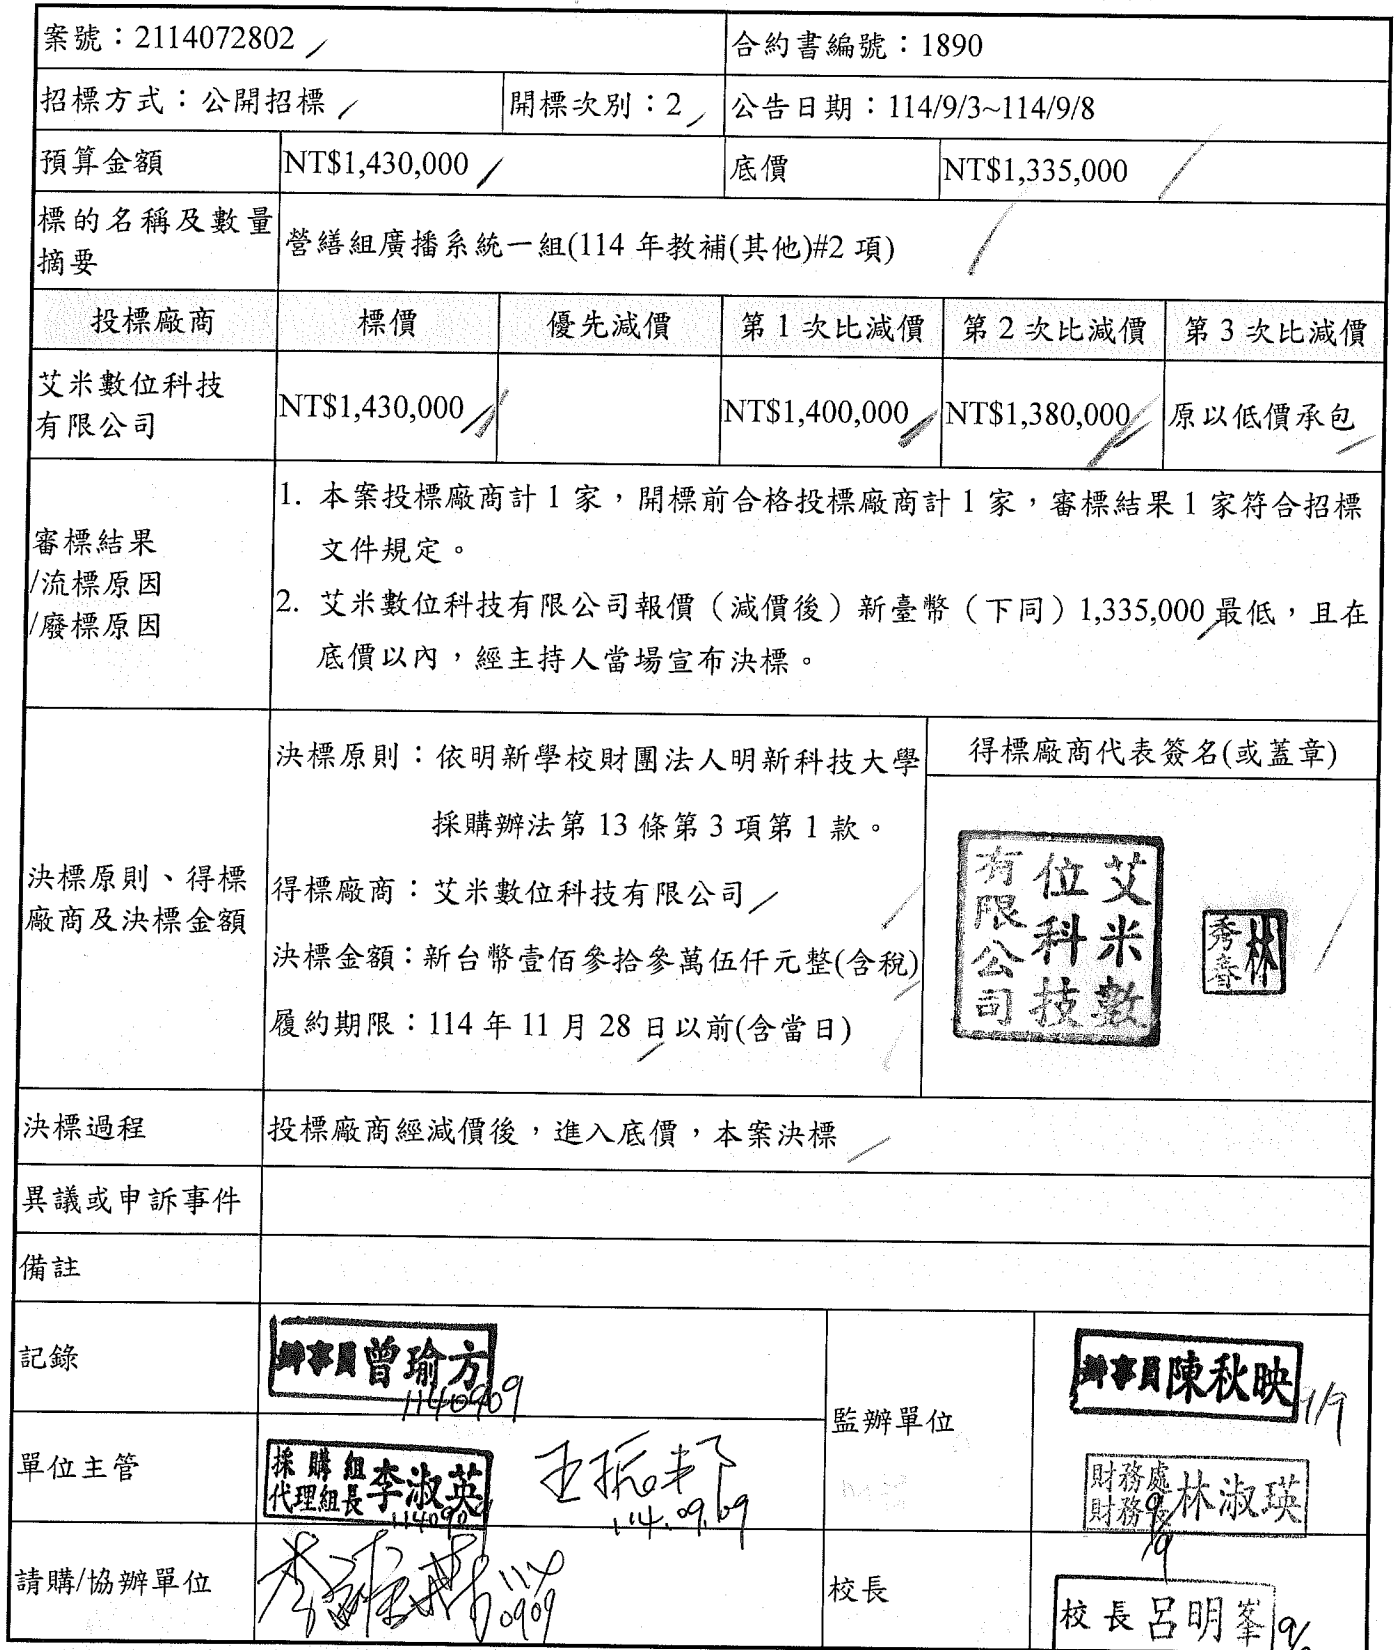 案號：2114072802
合約書編號：1890
招標方式：公開招標
開標次別：2
公告日期：114/9/3~114/9/8
預算金額
NT$1,430,000
底價
NT$1,335,000
標的名稱及數量
摘要
營繕組廣播系統一組(114 年教補(其他)#2 項)
投標廠商
標價
優先減價
第 1 次比減價
第 2 次比減價
第 3 次比減價
艾米數位科技
有限公司
NT$1,430,000
NT$1,400,000
NT$1,380,000
原以低價承包
審標結果
/流標原因
/廢標原因
1. 本案投標廠商計 1 家，開標前合格投標廠商計 1 家，審標結果 1 家符合招標
文件規定。
2. 艾米數位科技有限公司報價（減價後）新臺幣（下同）1,335,000 最低，且在
底價以內，經主持人當場宣布決標。
決標原則、得標
廠商及決標金額
決標原則：依明新學校財團法人明新科技大學
採購辦法第 13 條第 3 項第 1 款。
得標廠商：艾米數位科技有限公司
決標金額：新台幣壹佰參拾參萬伍仟元整(含稅)
履約期限：114 年 11 月 28 日以前(含當日)
得標廠商代表簽名(或蓋章)
艾米數
位科技
有限公司
林
秀春
決標過程
投標廠商經減價後，進入底價，本案決標
異議或申訴事件
備註
記錄
辦事員曾瑜方
1140909
監辦單位
辦事員陳秋映
9/9
單位主管
採購組
代理組長李淑英
114.09.09
財務處
財務長林淑瑛
9/9
請購/協辦單位
114
0909
校長
校長呂明峯